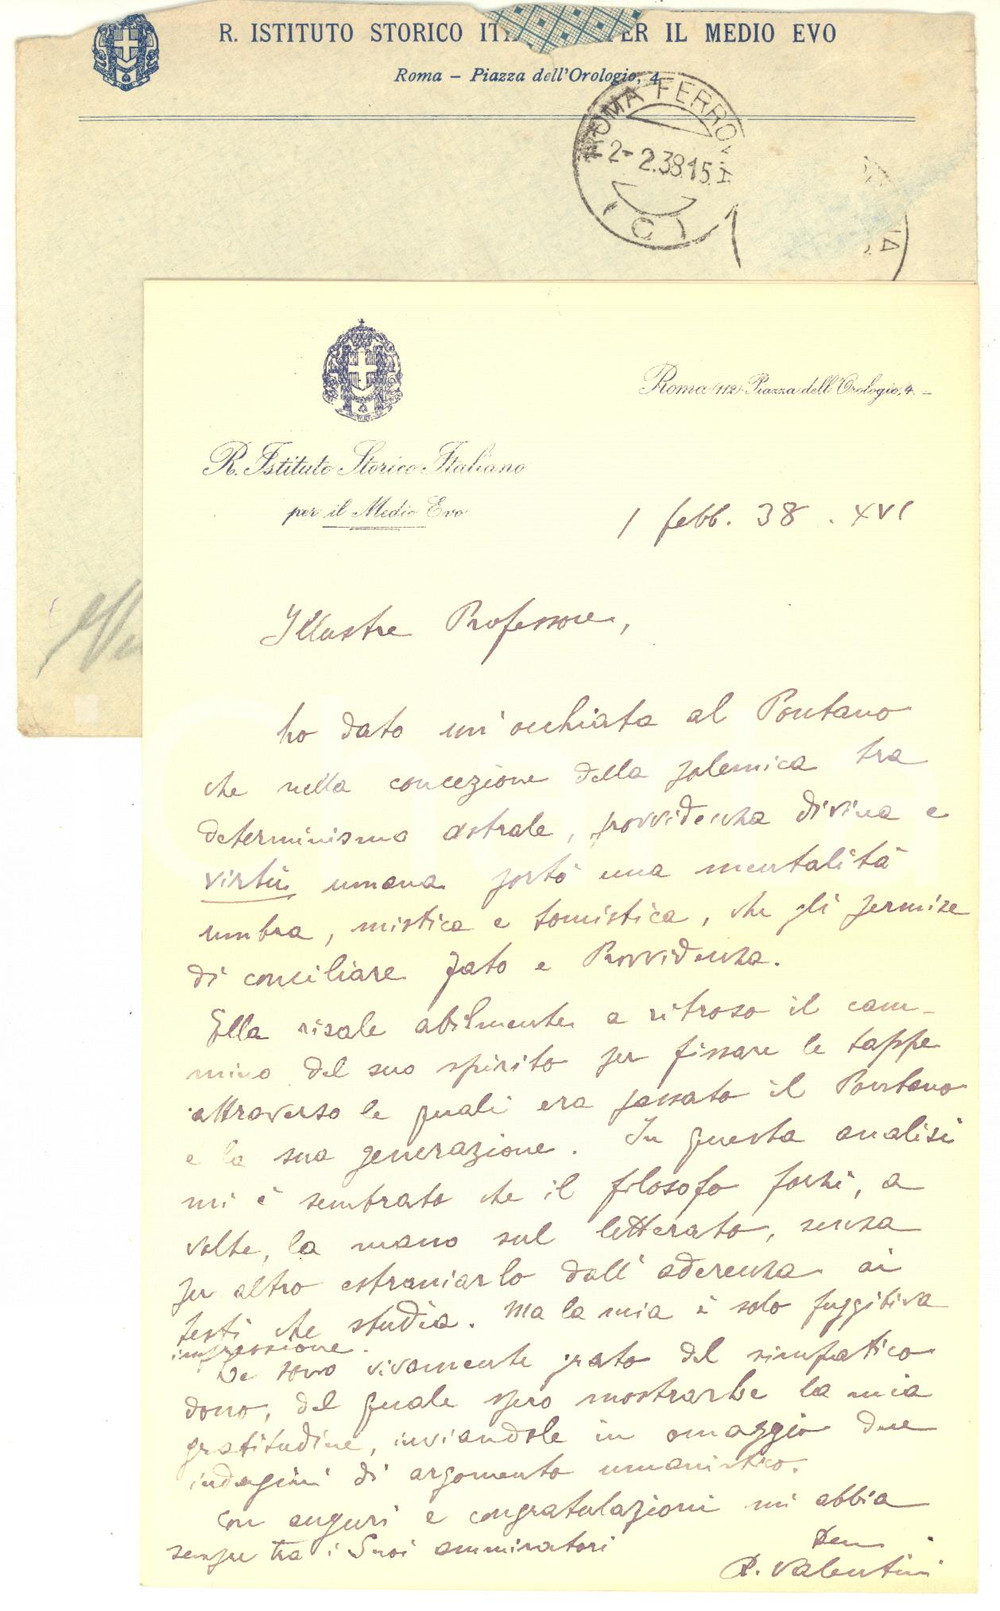 R. ISTITUTO STORICO ITA PER IL MEDIO EVO
Roma – Piazza dell'Orologio, 4
ROMA FERROVIA
2-2.38.15
(C)
Roma (112) Piazza dell'Orologio, 4. –
R. Istituto Storico Italiano
per il Medio Evo
1 febb. 38 . XVI
Illustre Professore,
ho dato un'occhiata al Pontano
che nella concezione della polemica tra
determinismo astrale, provvidenza divina e
virtù umana portò una mentalità
umbra, mistica e tomistica, che gli permise
di conciliare Fato e Provvidenza.
Ella risale abilmente a ritroso il cam-
mino del suo spirito per fissare le tappe
attraverso le quali era passato il Pontano
e la sua generazione. In questa analisi
mi è sembrato che il filosofo forzi, a
volte, la mano sul letterato, senza
per altro estraniarlo dall'aderenza ai
testi che studia. Ma la mia è solo fuggitiva
impressione.
Le sono vivamente grato del simpatico
dono, del quale spero mostrarle la mia
gratitudine, inviandole in omaggio due
indagini di argomento umanistico.
Con auguri e congratulazioni mi abbia
sempre tra i Suoi ammiratori
Dev.
R. Valentini